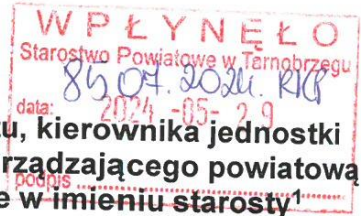 WPŁYNĘŁO
Starostwo Powiatowe w Tarnobrzegu
8507.2024. RKP
data: 2024 -05- 29
tu, kierownika jednostki
rządzającego powiatową
podpis
e w imieniu starosty¹